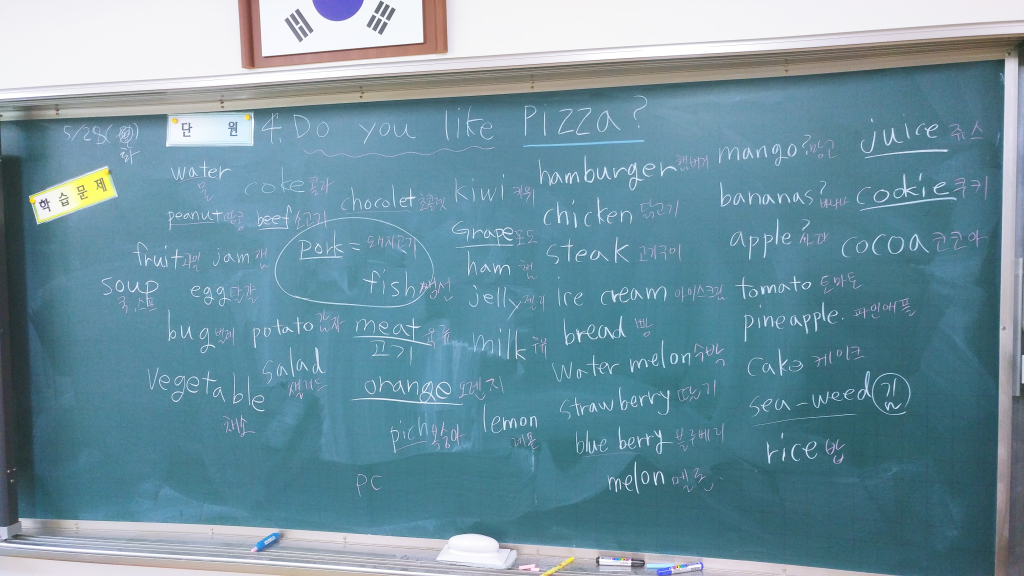 5/29
단 원 4. Do you like PIZZA?
학습문제
water 물
coke 콜라
chocolet 초콜릿
kiwi 키위
hamburger 햄버거
mango? 망고
juice 쥬스
peanut 땅콩 beef 소고기
Grape 포도
chicken 닭고기
bananas? 바나나
cookie 쿠키
fruit 과일 jam 잼
pork = 돼지고기
ham 햄
steak 고기구이
apple? 사과
cocoa 코코아
soup 국, 스프
egg 달걀
fish 생선
jelly 젤리
ice cream 아이스크림
tomato 토마토
bug 벌레 potato 감자 meat 육류
고기
milk 우유
bread 빵
pineapple. 파인애플
vegetable 채소
salad 샐러드
orange 오렌지
water melon 수박
cake 케이크
pich 복숭아
lemon 레몬
strawberry 딸기
sea-weed 김
blue berry 블루베리
rice 밥
melon 멜론
PC